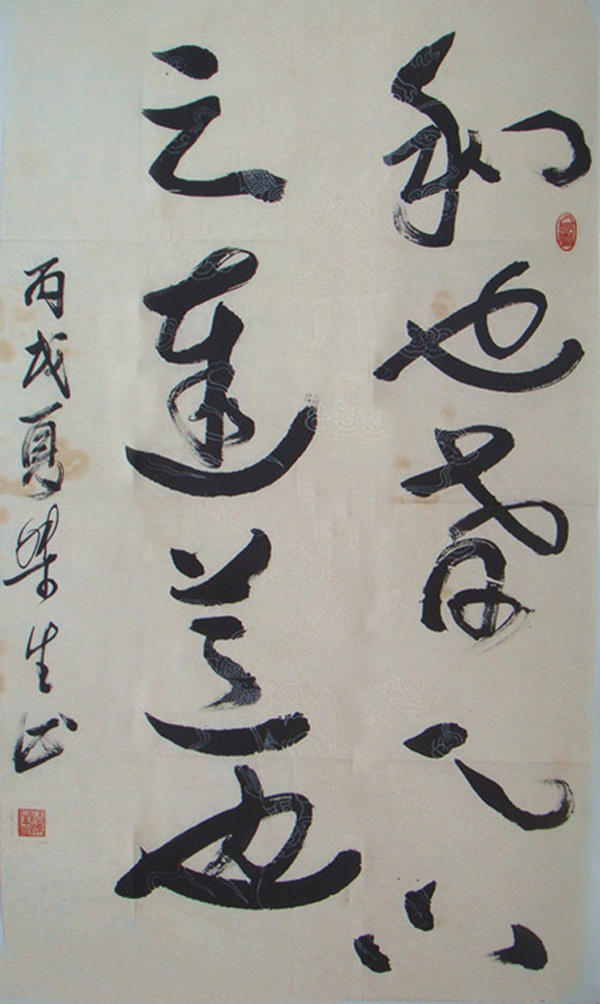 和也者天下
之達道也
丙戌夏生